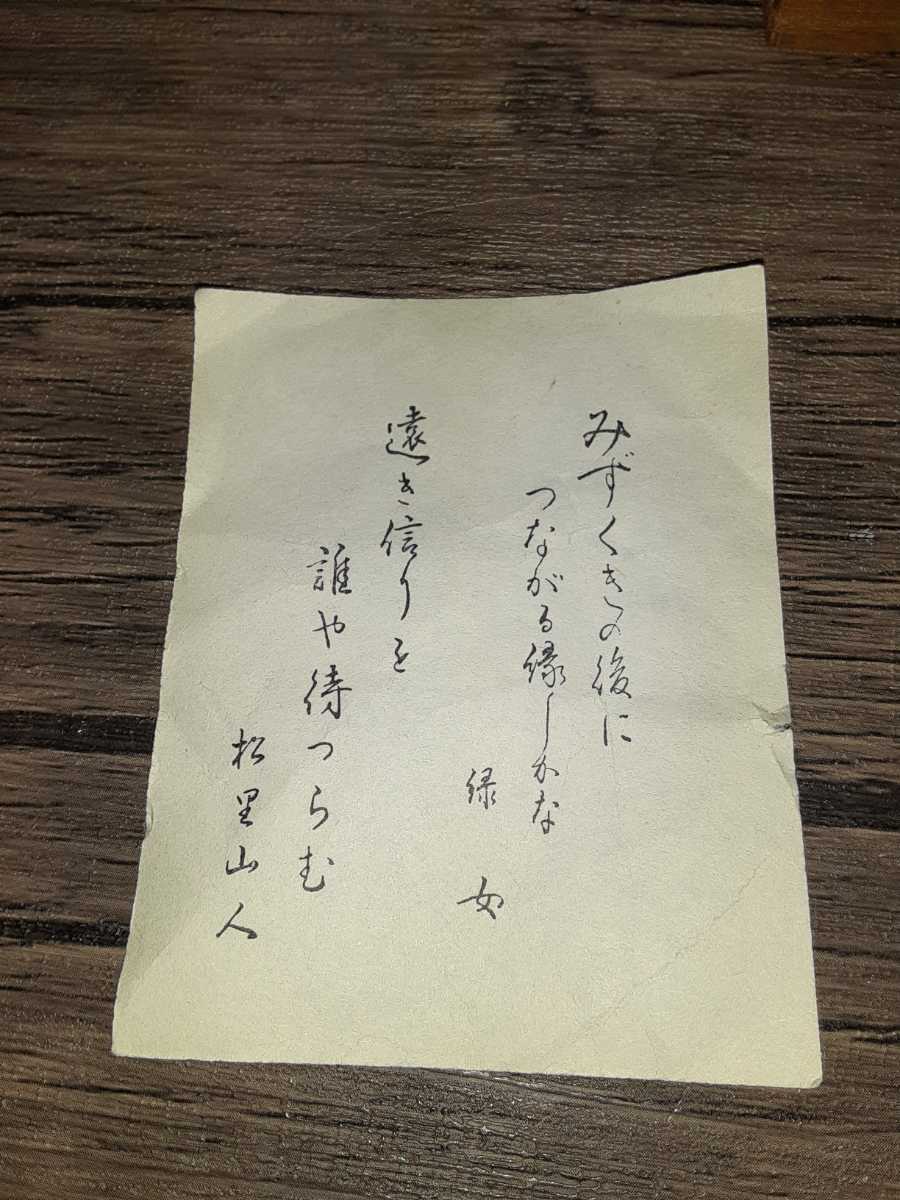 みずくきの後に
つながる縁しかな
緑女
遠き信りを
誰や待つらむ
松里山人